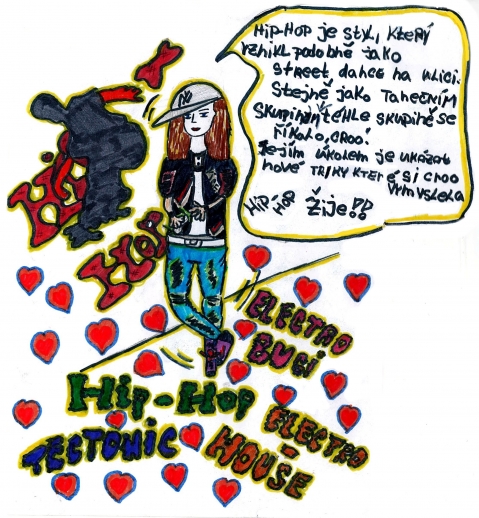 HiP-HOP je STYL, KTERÝ
VZNIKL PODOBNĚ JAKO
STREET dance na ulici.
STEJNĚ JAKO TANEČNÍM
SKUPINÁM TÉHLE SKUPINĚ SE
ŘÍKALO, CROO!
JEJÍM ÚKOLEM JE UKÁZAT
NOVÉ TRIKY KTERÉ SI CROO
HiP HOP ŽIJE!!
HiP
HOP
ELECTRO
BUGI
HiP-HOP
TECTONIC
ELECTRO
-
HOUSE